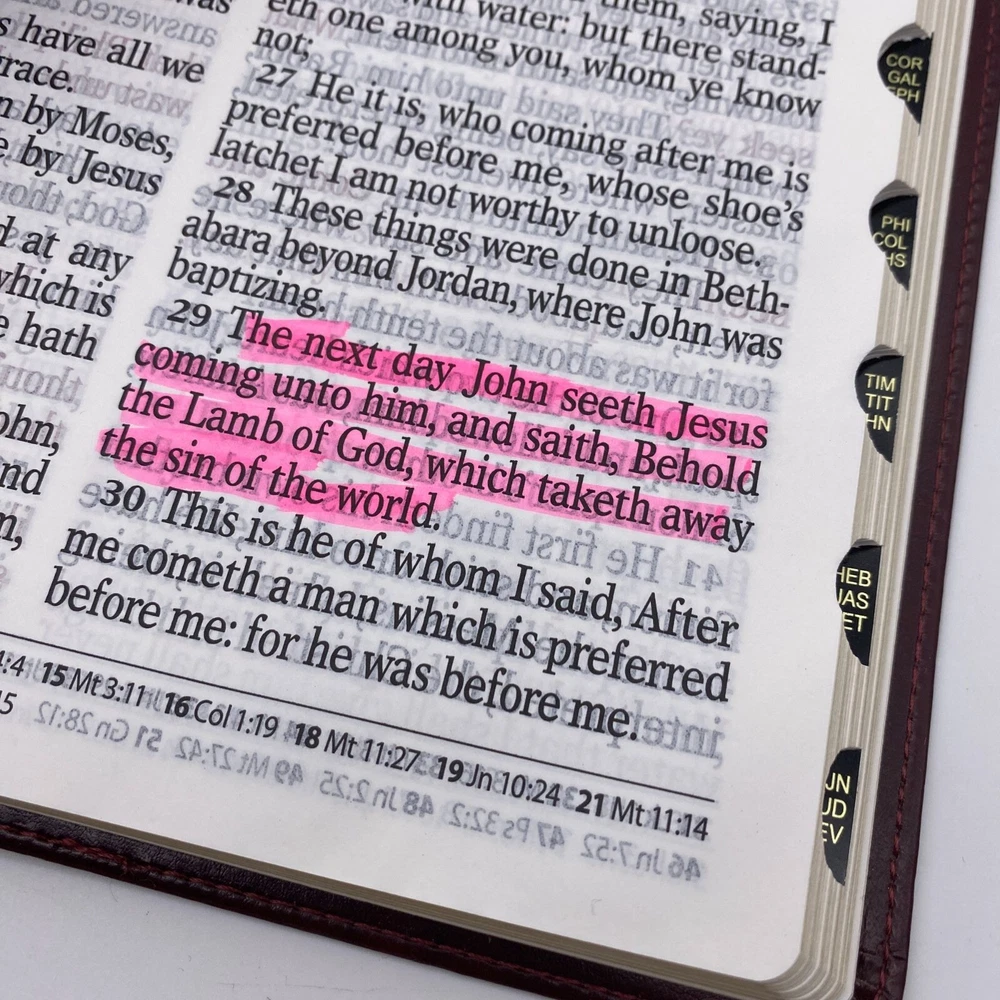 was
s have all we
race.
n by Moses,
e by Jesus
d at any
which is
e hath
ohn,
nd
m,
with water: but there stand-
eth one among you, whom ye know
not;
27 He it is, who coming after me is
preferred before me, whose shoe's
latchet I am not worthy to unloose.
28 These things were done in Beth-
abara beyond Jordan, where John was
baptizing.
29 The next day John seeth Jesus
coming unto him, and saith, Behold
the Lamb of God, which taketh away
the sin of the world.
30 This is he of whom I said, After
me cometh a man which is preferred
before me: for he was before me.
4:4 15 Mt 3:11 16 Col 1:19 18 Mt 11:27 19 Jn 10:24 21 Mt 11:14
5
COR
GAL
EPH
PHI
COL
HS
TIM
TIT
HN
HEB
JAS
ET
JN
UD
EV